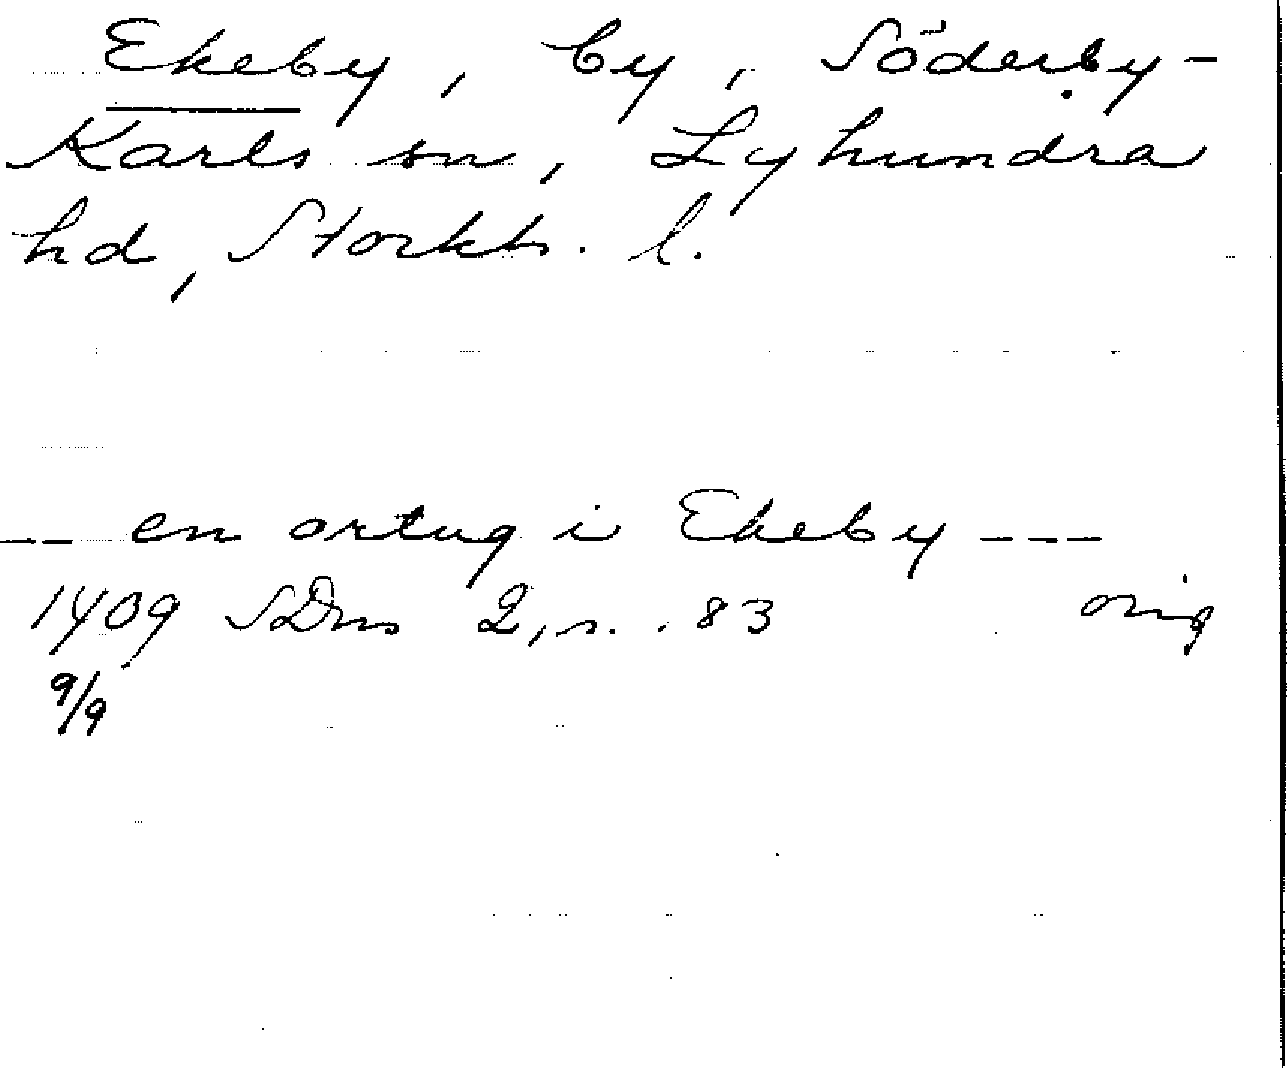 Ekeby, by, Söderby-
Karls sn, Lyhundra
hd, Stockh. l.
-- en ortug i Ekeby ---
1409 SDns 2, s. 83 orig
9/9